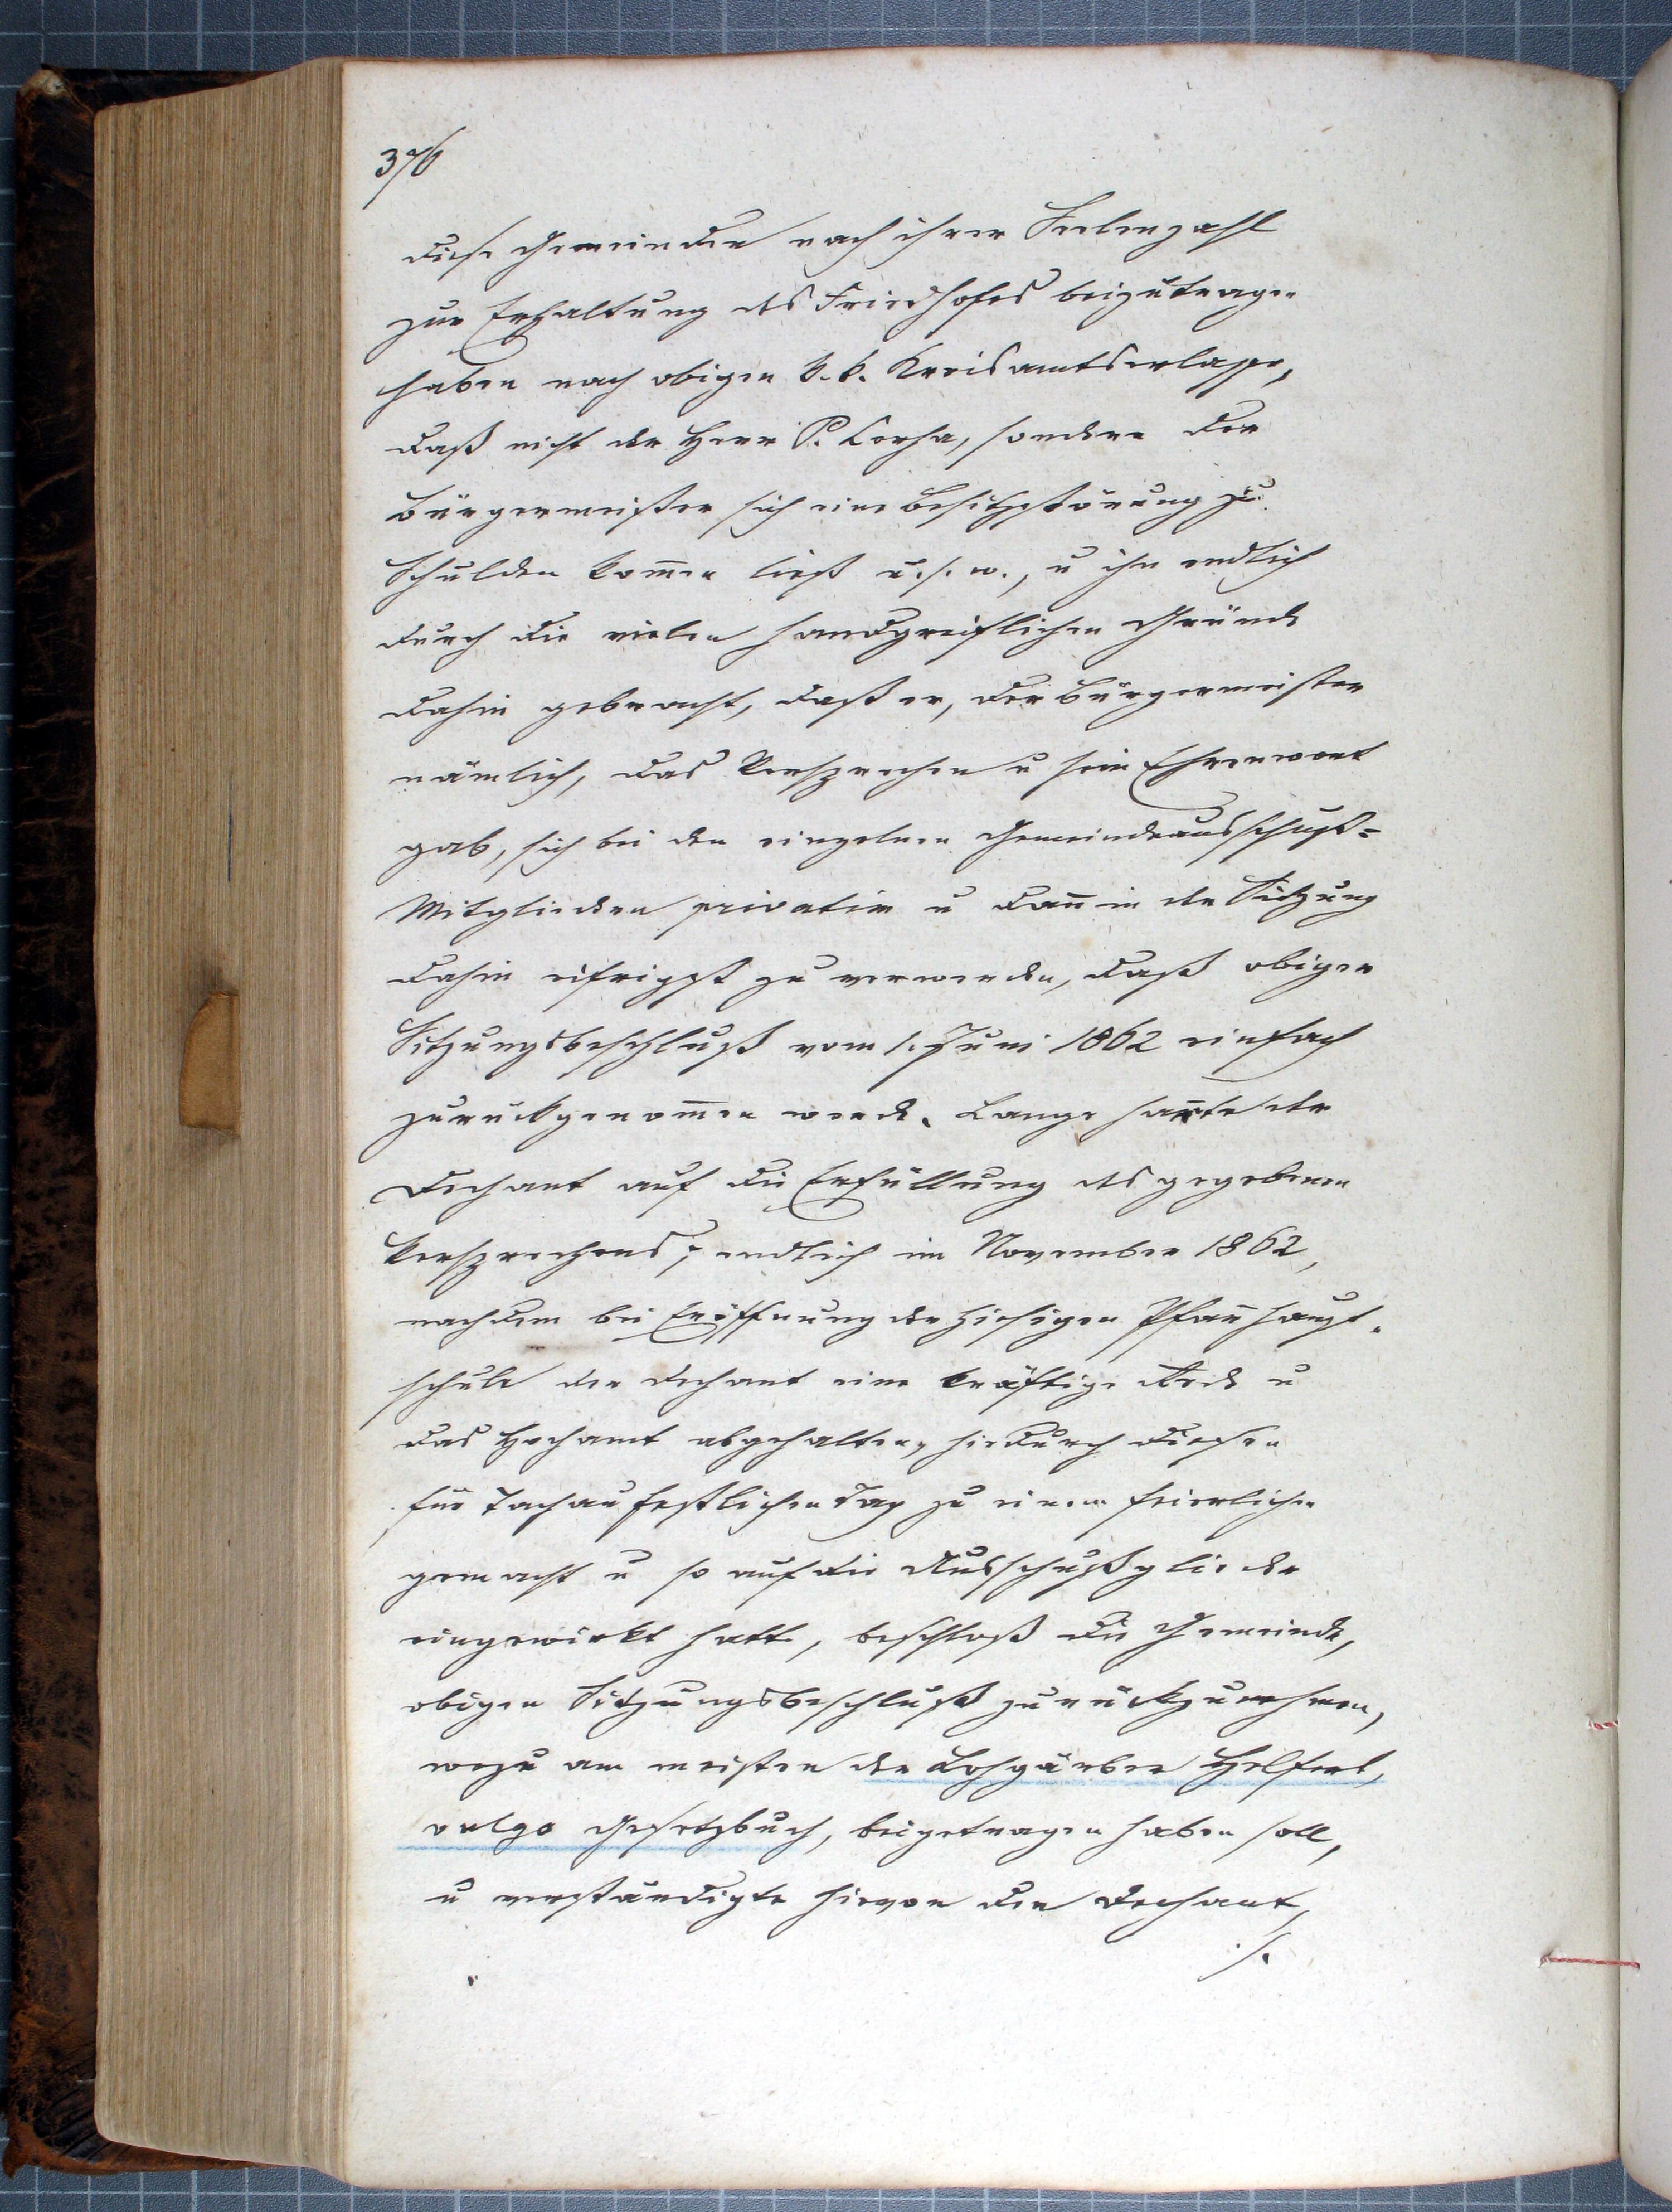 376
diese Gemeinden nach ihrer Seelenzahl
zur Erhaltung des Friedhofes beizutragen
haben nach obigen k. k. Kreisamtserlasse,
daß nicht der Herr P. Corha, sondern der
Bürgermeister sich eine Besitzstörung zu
Schulden kom̄en ließ u. s. w., u ihn endlich
durch die vielen handgreiflichen Gründe
dahin gebracht, daß er, der Bürgermeister
nämlich, das Versprechen u sein Ehrenwort
gab, sich bei den einzelnen Gemeindeausschuß=
Mitgliedern privatim u dan̄ in der Sitzung
dahin eifrigst zu verwenden, daß obiger
Sitzungsbeschluß vom 1. Juni 1862 einfach
zurückgenom̄en werde. Lange harrte der
Dechant auf die Erfüllung des gegebenen
Versprechens; endlich im November 1862,
nachdem bei Eröffnung der hiesigen Pfarrhaupt-
schule der Dechant eine kräftige Rede u
das Hochamt abgehalten, hiedurch diesen
für Tachau festlichen Tag zu einem feierlichen
gemacht u so auf die Ausschußglieder
eingewirkt hatte, beschloß die Gemeinde,
obigen Sitzungsbeschluß zurückzunehmen,
wozu am meisten der Lohgärber Helfert,
vulgo Gesetzbuch, beigetragen haben soll,
u verständigte hievon den Dechant,
./.